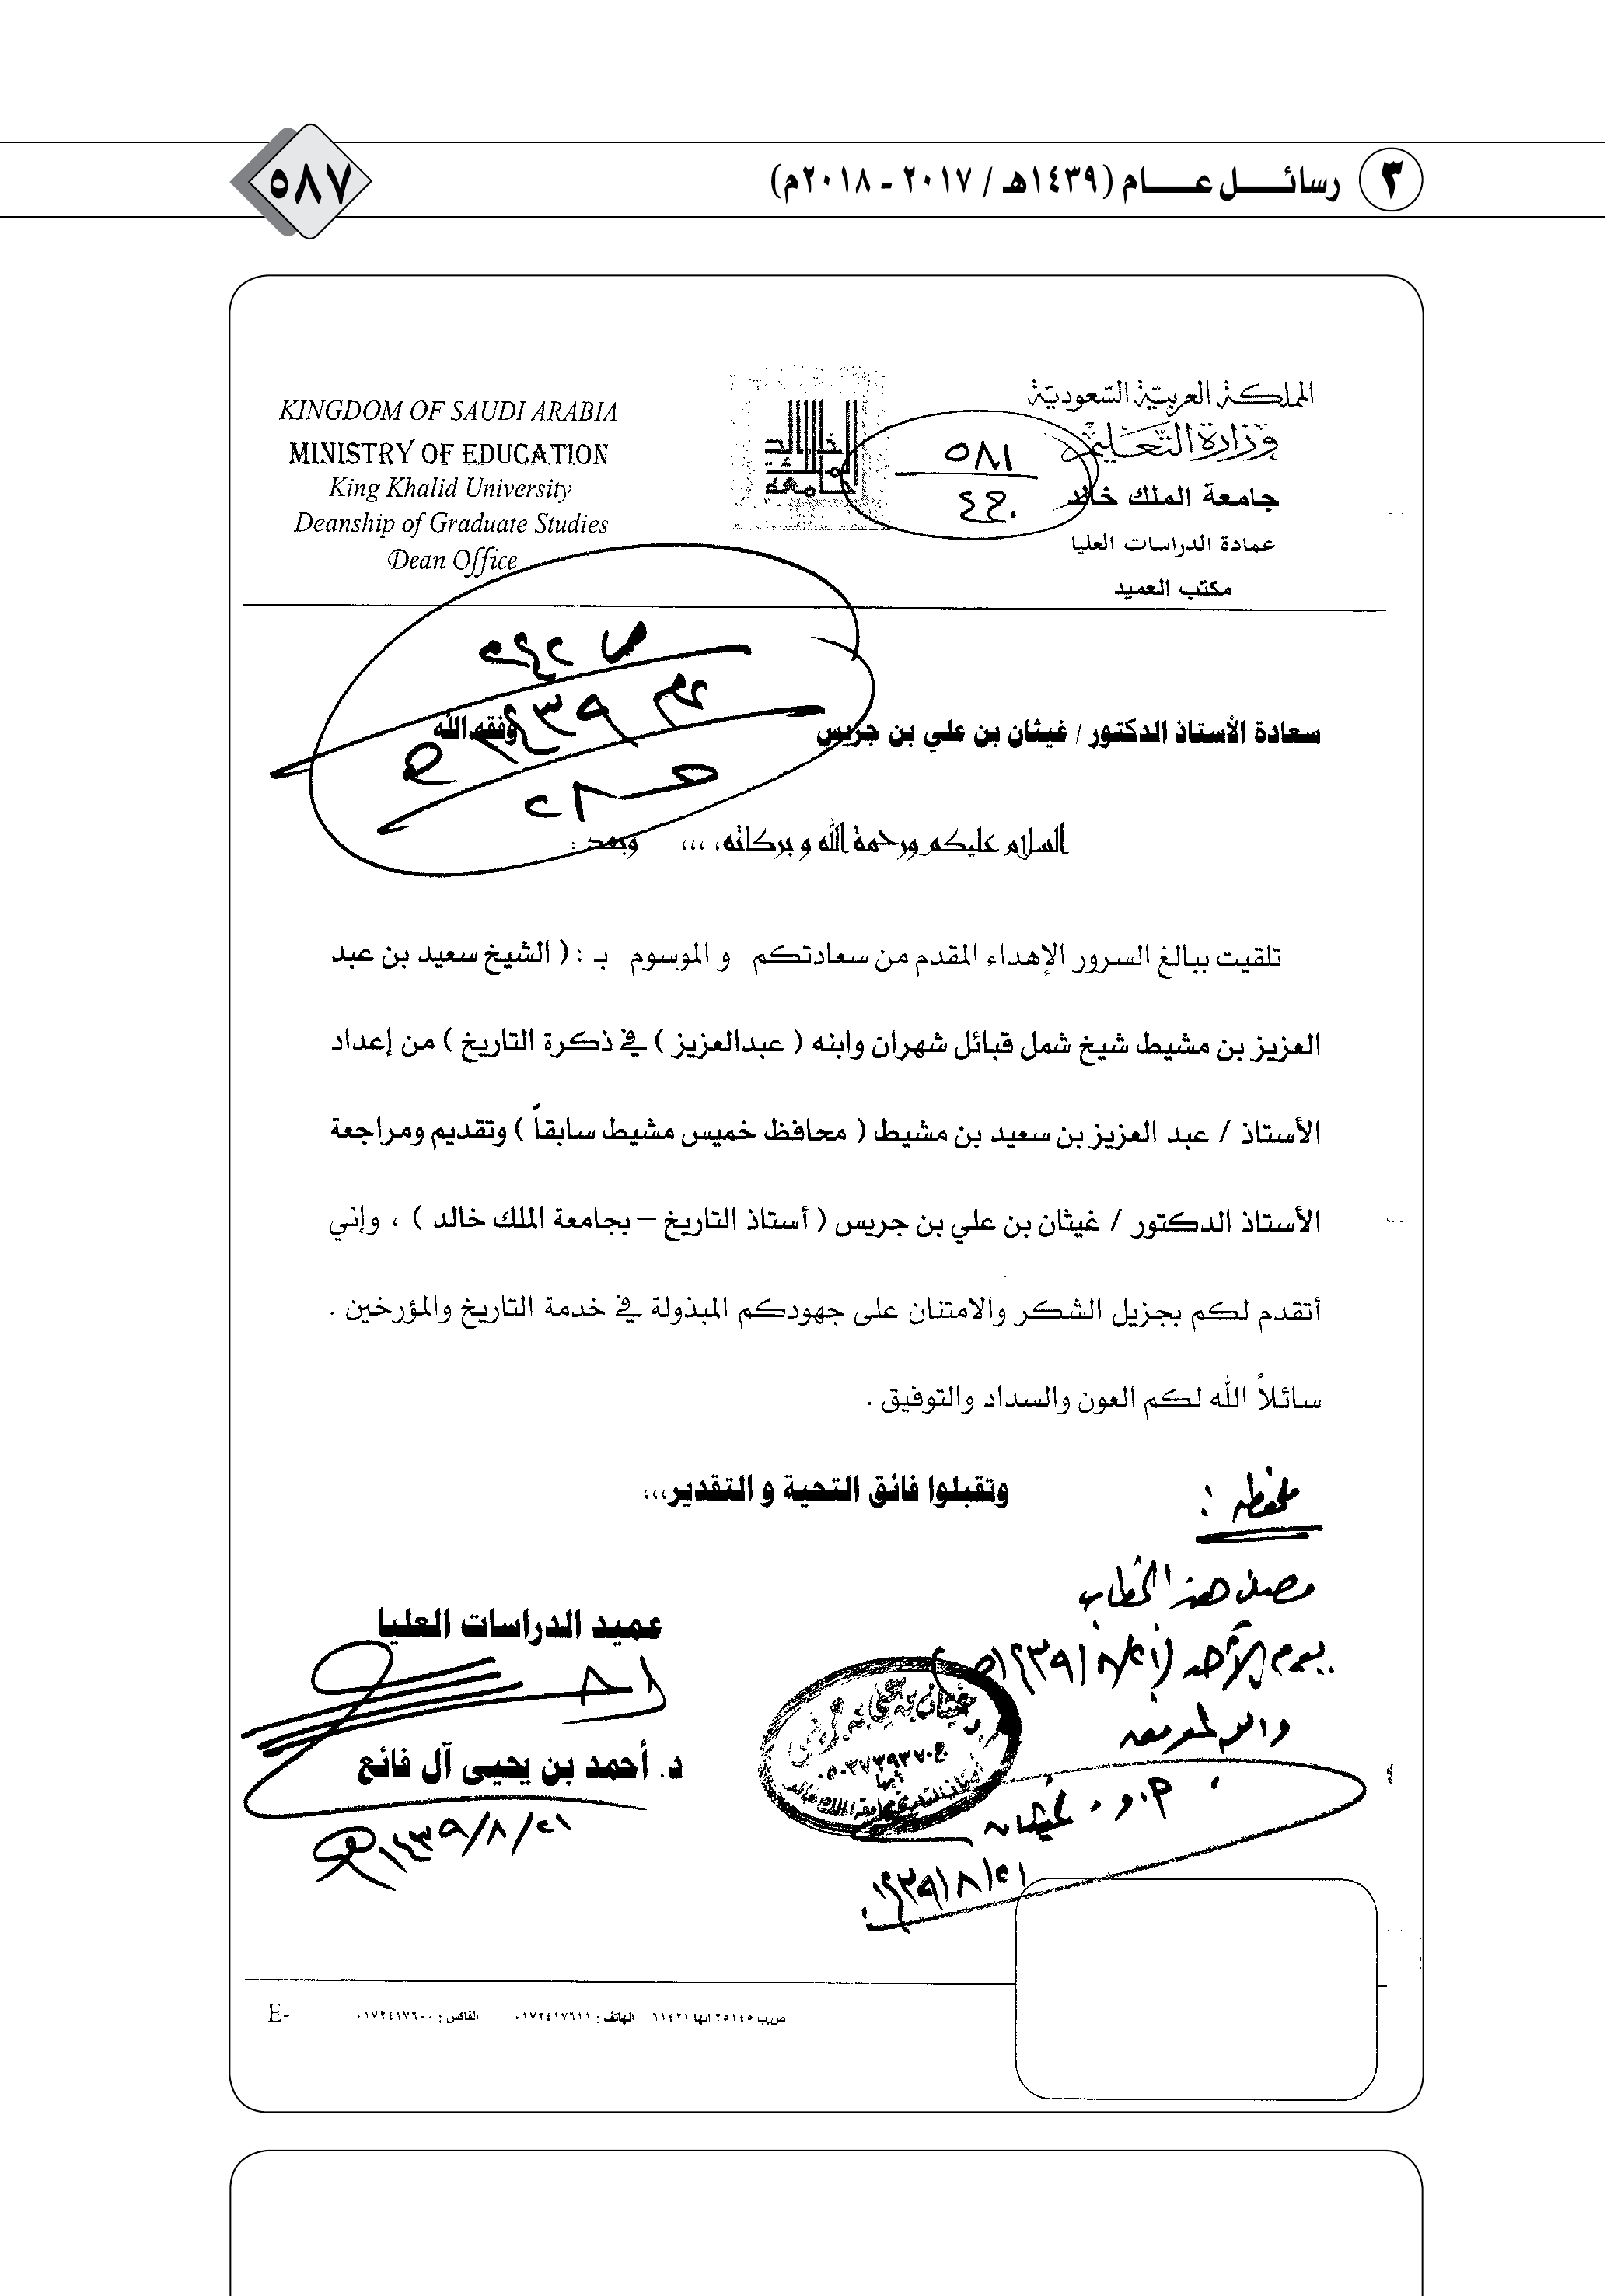 ٣ رسائل عام (١٤٣٩هـ / ٢٠١٧ - ٢٠١٨م)
٥٨٧
المملكة العربية السعودية
وزارة التعليم
جامعة الملك خالد
عمادة الدراسات العليا
مكتب العميد
٥٨١
جامعة الملك خالد
KINGDOM OF SAUDI ARABIA
MINISTRY OF EDUCATION
King Khalid University
Deanship of Graduate Studies
Dean Office
سعادة الأستاذ الدكتور / غيثان بن علي بن جريس وفقه الله
السلام عليكم ورحمة الله و بركاته، ،،، وبعد :
تلقيت ببالغ السرور الإهداء المقدم من سعادتكم و الموسوم بـ : ( الشيخ سعيد بن عبد
العزيز بن مشيط شيخ شمل قبائل شهران وابنه ( عبدالعزيز ) في ذكرة التاريخ ) من إعداد
الأستاذ / عبد العزيز بن سعيد بن مشيط ( محافظ خميس مشيط سابقاً ) وتقديم ومراجعة
الأستاذ الدكتور / غيثان بن علي بن جريس ( أستاذ التاريخ – بجامعة الملك خالد ) ، وإني
أتقدم لكم بجزيل الشكر والامتنان على جهودكم المبذولة في خدمة التاريخ والمؤرخين .
سائلاً الله لكم العون والسداد والتوفيق .
وتقبلوا فائق التحية و التقدير،،،
هذا الخطاب
يوم الأحد (٢١/٨/١٤٣٩هـ)
أ.د. غيثان
٢١/٨/١٤٣٩
عميد الدراسات العليا
د. أحمد بن يحيى آل فائع
٢١/٨/١٤٣٩هـ
ص.ب ٢٥١٤٥ ابها ٦١٤٢١ الهاتف : ٠١٧٢٤١٧٦١١ الفاكس : ٠١٧٢٤١٧٦٠٠
E-